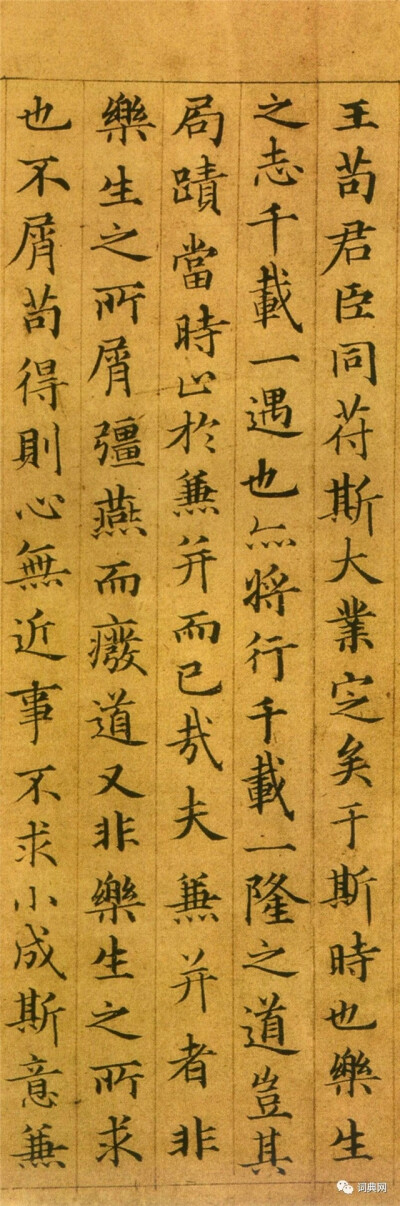 王苟君臣同苻斯大業定矣于斯時也樂生
之志千載一遇也亦将行千載一隆之道豈其
局蹟當時止於蒹并而已哉夫蒹并者非
樂生之所屑彊燕而癈道又非樂生之所求
也不屑苟得則心無近事不求小成斯意蒹
词典网